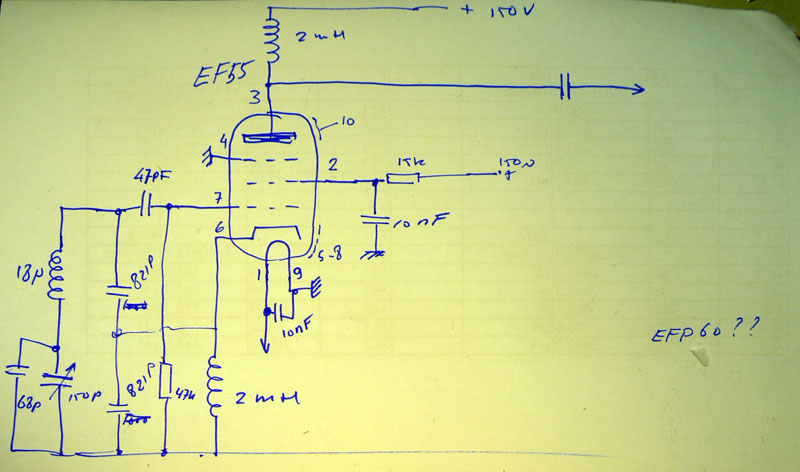 + 150V
2 mH
EF55
3
10
4
2
15k
150V
+
47pF
7
10nF
6
5-8
18µ
821P
1
9
10nF
EFP60 ??
68p
150P
821P
1000
47k
2 mH